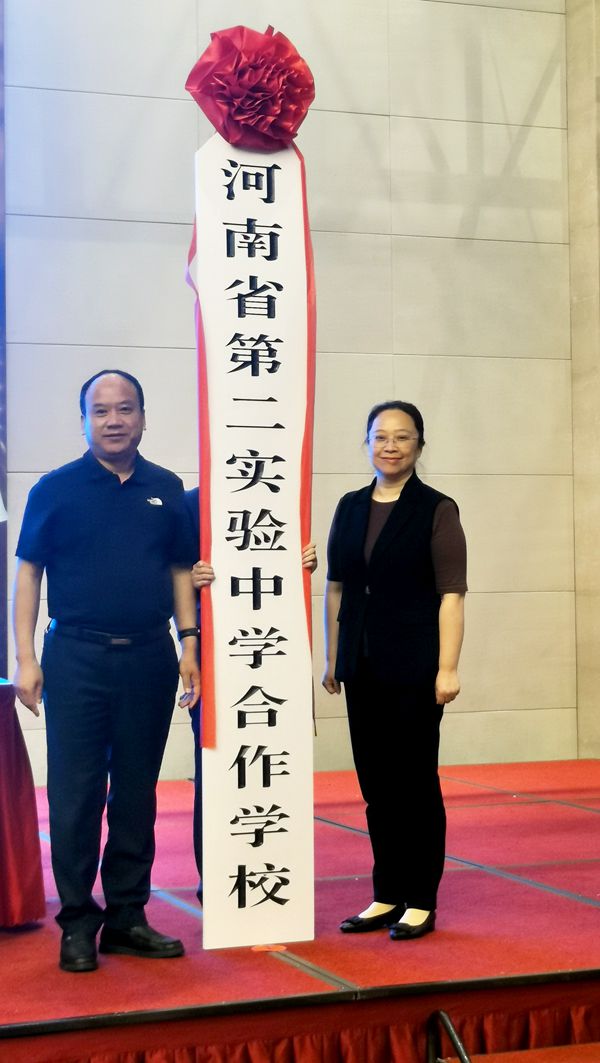 河南省第二实验中学合作学校